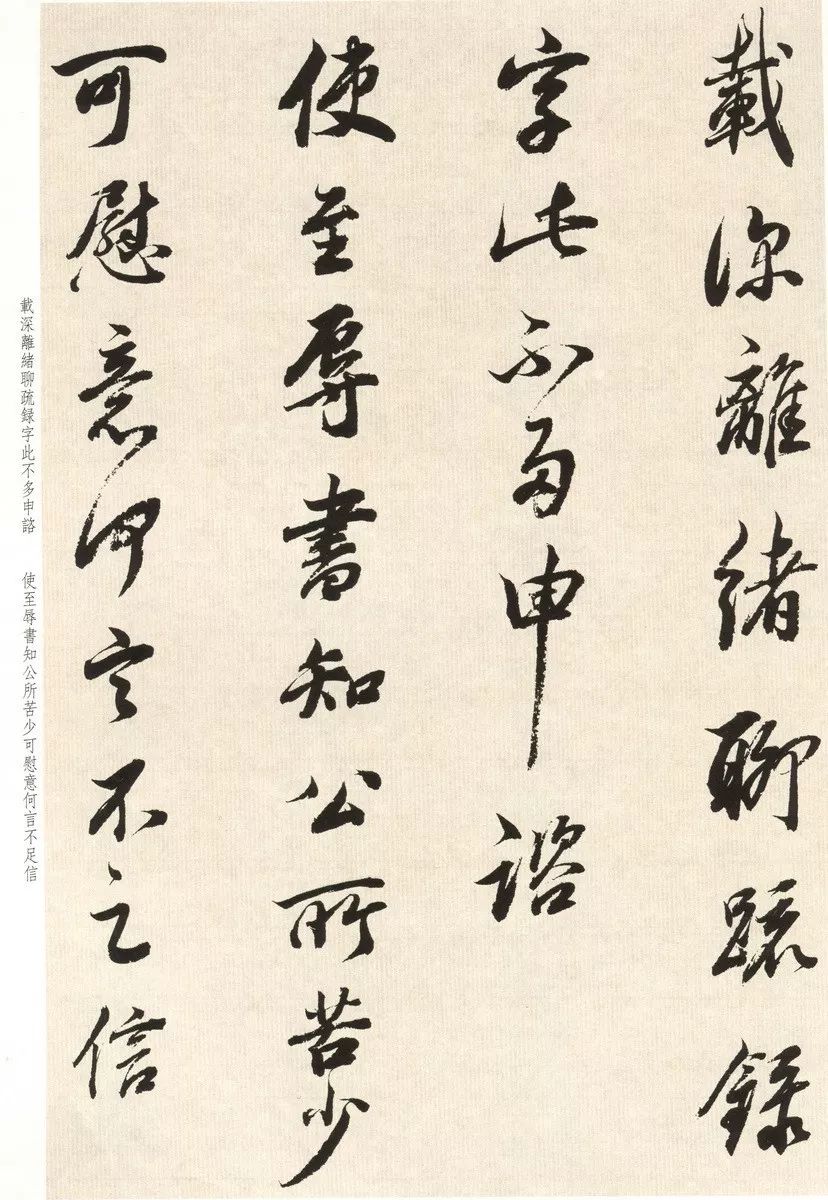 載深離緒聊疏錄
字此不多申諮
使至辱書知公所苦少
可慰意何言不足信
載深離緒聊疏録字此不多申諮　使至辱書知公所苦少可慰意何言不足信